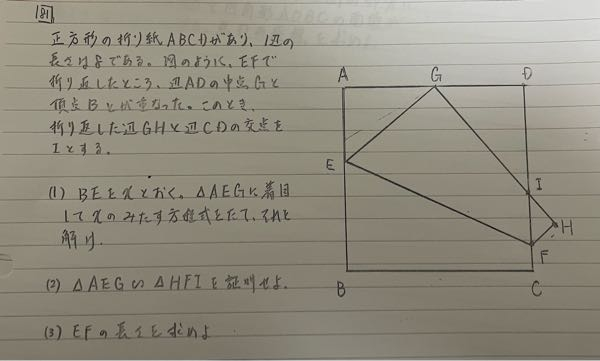 181
正方形の折り紙ABCDがあり、1辺の
長さは8である。図のように、EFで
折り返したところ、辺ADの中点Gと
頂点Bとが重なった。このとき、
折り返した辺GHと辺CDの交点を
Iとする。
(1) BEをxとおく。△AEGに着目
してxのみたす方程式をたて、それを
解け。
(2) △AEG∽△HFIを証明せよ。
(3) EFの長さを求めよ
A G D
E
I
H
F
B C